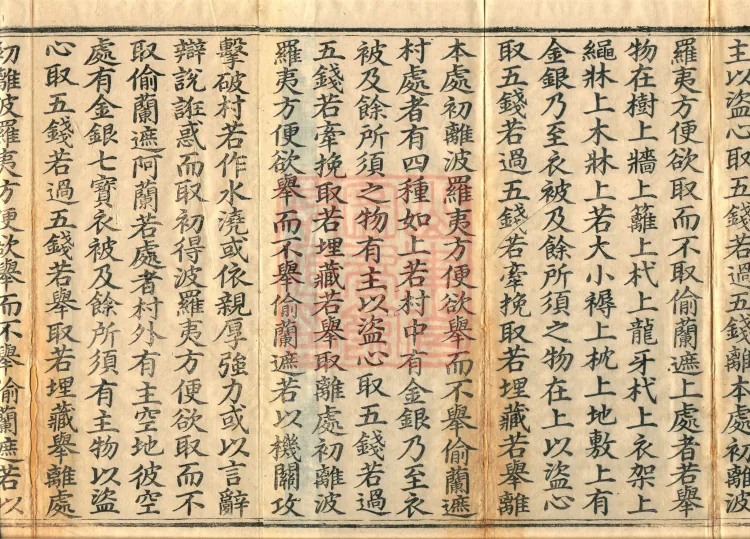 主以盜心取五錢若過五錢離本處初離波
羅夷方便欲取而不取偷蘭遮上處者若舉
物在樹上牆上籬上杙上龍牙杙上衣架上
繩牀上木牀上若大小褥上枕上地敷上有
金銀乃至衣被及餘所須之物在上以盜心
取五錢若過五錢若牽挽取若埋藏若舉離
本處初離波羅夷方便欲舉而不舉偷蘭遮
村處者有四種如上若村中有金銀乃至衣
被及餘所須之物有主以盜心取五錢若過
五錢若牽挽取若埋藏若舉取離處初離波
羅夷方便欲舉而不舉偷蘭遮若以機關攻
擊破村若作水澆或依親厚強力或以言辭
辯說誑惑而取初得波羅夷方便欲取而不
取偷蘭遮阿蘭若處者村外有主空地彼空
處有金銀七寶衣被及餘所須有主物以盜
心取五錢若過五錢若舉取若埋藏舉離處
初離波羅夷方便欲舉而不舉偷蘭遮若以